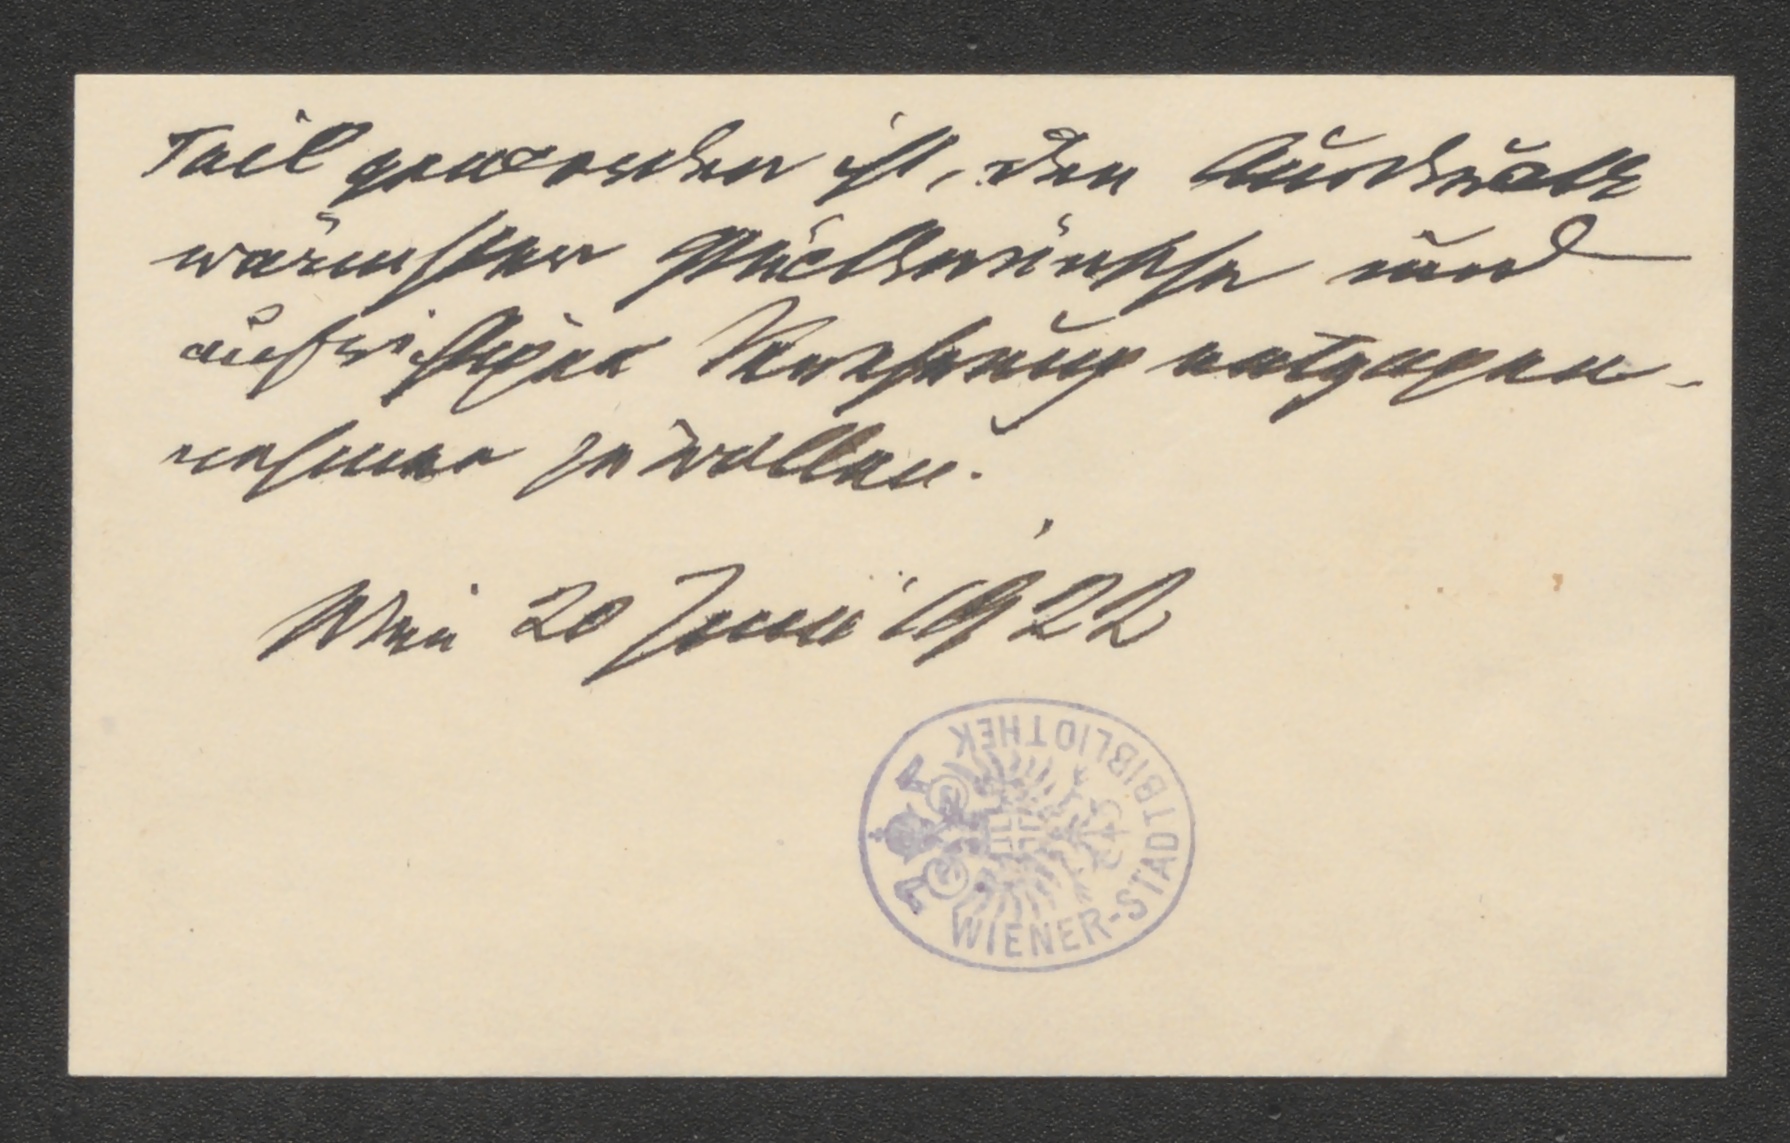 Teil geworden ist, den Ausdruck
wärmster Glückwünsche und
aufrichtiger Verehrung entgegen-
nehmen zu wollen.
Wien 20 Juni 1922
WIENER-STADTBIBLIOTHEK